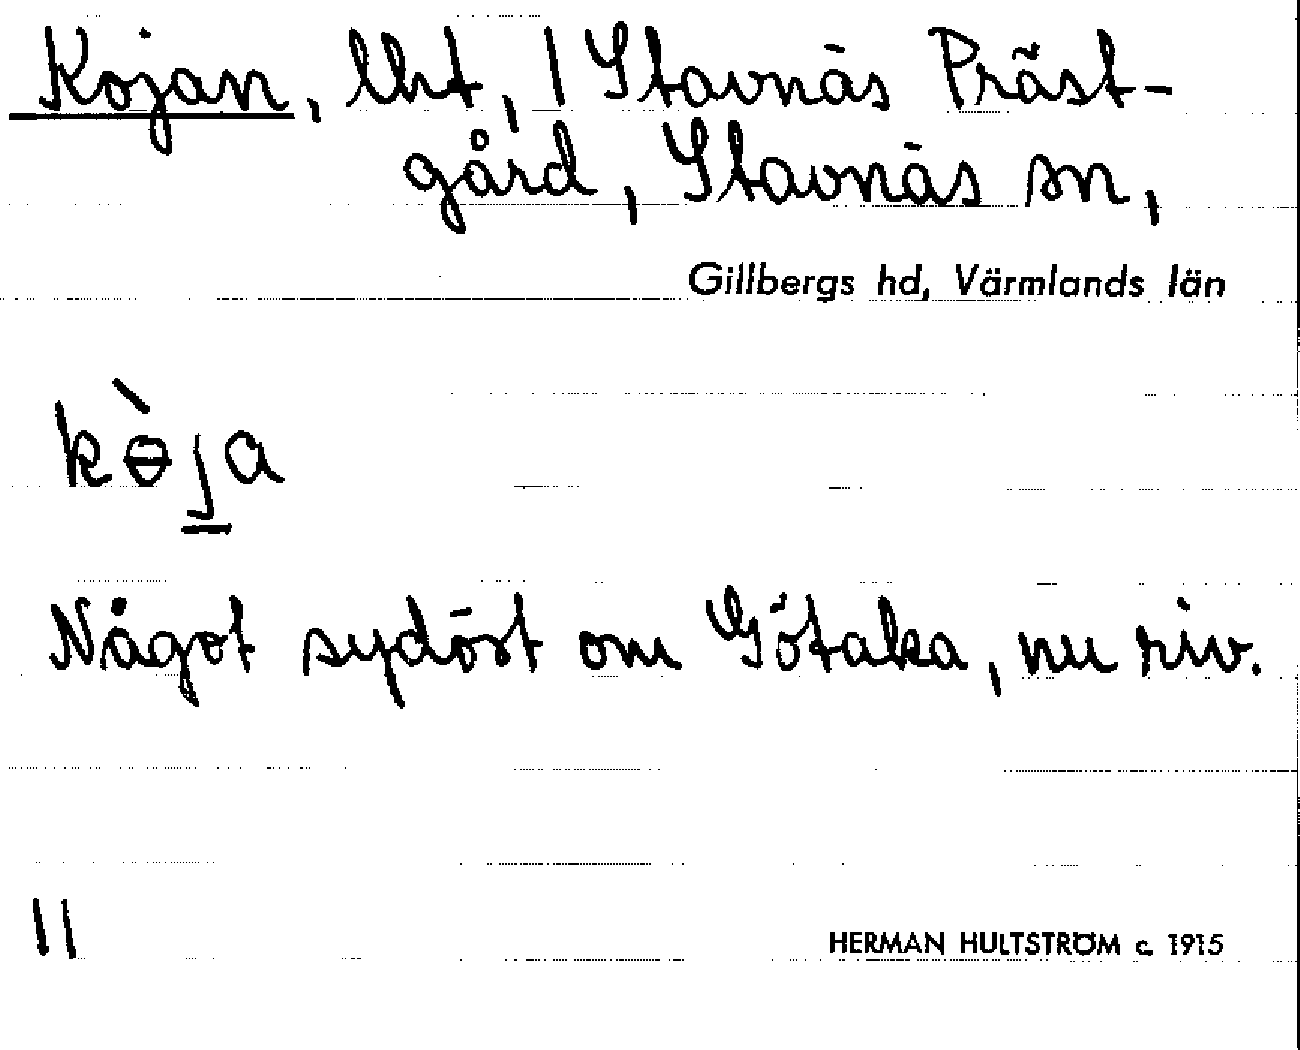 Kojan, lht, 1 Stavnäs Präst-
gård, Stavnäs sn,
Gillbergs hd, Värmlands län
kɵ̀ja
Något sydöst om Götaka, nu riv.
11
HERMAN HULTSTRÖM c. 1915